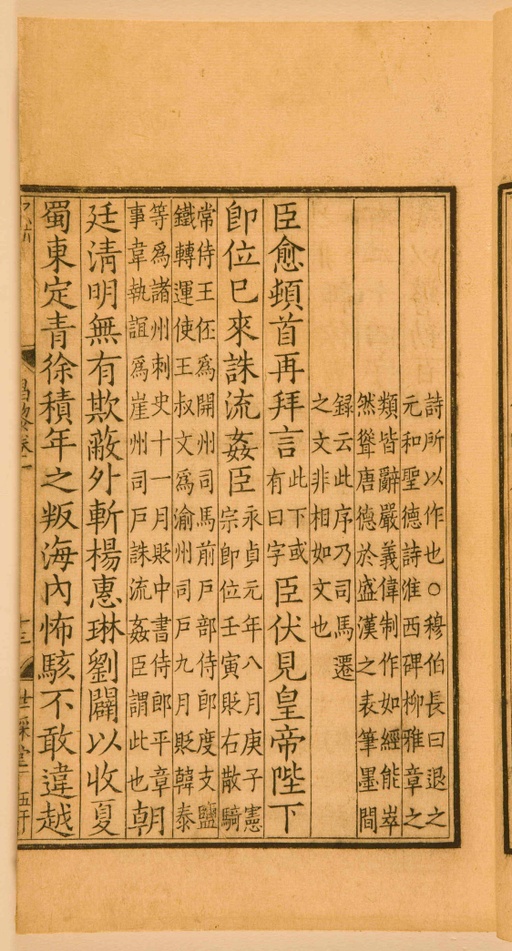 詩所以作也○穆伯長曰退之
元和聖德詩淮西碑柳雅章之
類皆辭嚴義偉制作如經能崒
然聳唐德於盛漢之表筆墨間
録云此序乃司馬遷
之文非相如文也
臣愈頓首再拜言此下或有曰字臣伏見皇帝陛下
即位已來誅流姦臣永貞元年八月庚子憲宗即位壬寅貶右散騎
常侍王伾爲開州司馬前戶部侍郎度支鹽
鐵轉運使王叔文爲渝州司戶九月貶韓泰
等爲諸州刺史十一月貶中書侍郎平章
事韋執誼爲崖州司戶誅流姦臣謂此也朝
廷清明無有欺蔽外斬楊惠琳劉闢以收夏
蜀東定青徐積年之叛海內怖駭不敢違越
昌黎卷一
十三
世綵堂